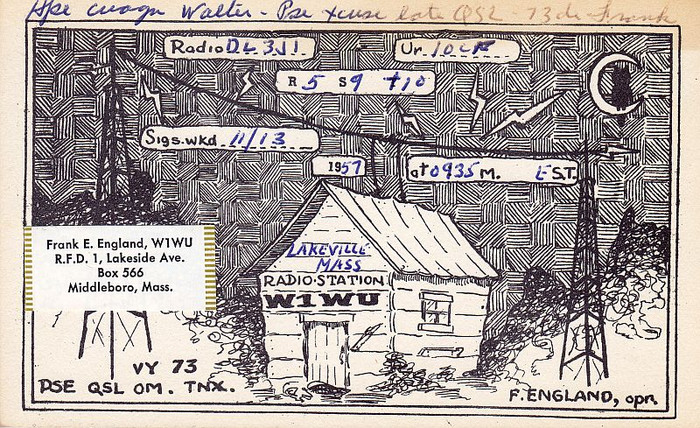 Hpe cuagn Walter - Pse xcuse late QSL 73 de Frank
Radio DL3JJ. Ur. 10 CW
R 5 S 9 +10
Sigs.wkd 11/13
1957 at 0935 M. EST.
Frank E. England, W1WU
R.F.D. 1, Lakeside Ave.
Box 566
Middleboro, Mass.
LAKEVILLE
MASS
RADIO·STATION
W1WU
VY 73
PSE QSL OM. TNX.
F. ENGLAND, opr.